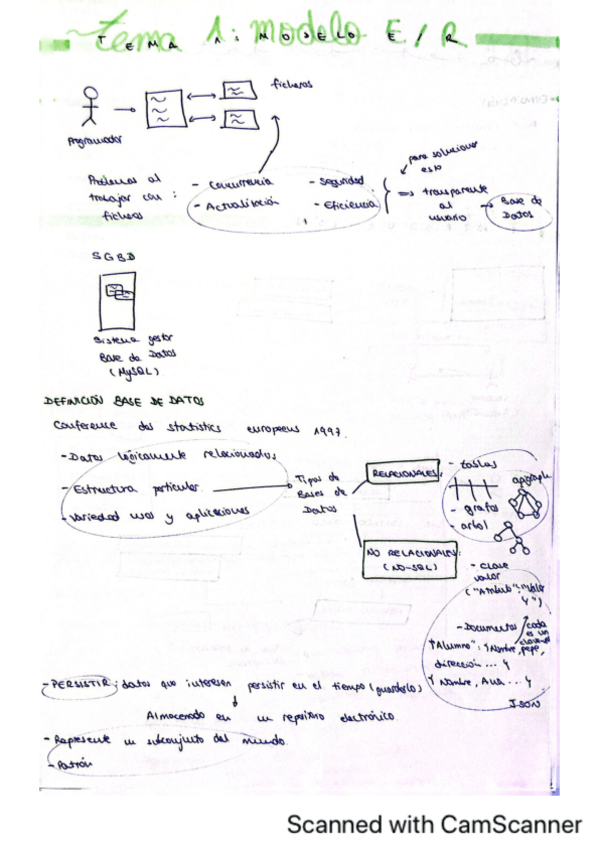 Tema 1: modelo E/R
TEMA 1: MODELO E/R
ficheros
Programador
para solucionar
esto
Problemas al
trabajar con :
ficheros
- Concurrencia
- Actualización
- Seguridad
- Eficiencia
=> transparente
al
usuario
Base de
Datos
SGBD
Sistema gestor
Base de Datos
(MySQL)
DEFINICIÓN BASE DE DATOS
Conference des statistics europeens 1997.
- Datos lógicamente relacionados
- Estructura particular
- Variedad usos y aplicaciones
Tipos de
Bases de
Datos
RELACIONALES:
- tablas
- grafos
- arbol
NO RELACIONALES:
(NO-SQL)
- clave
valor
- Documentos
cada
es un
"Alumno": {Nombre, pepe,
dirección ... }
{ Nombre, Ana ... }
JSON
- PERSISTIR: datos que interesen persistir en el tiempo (guardarlo)
Almacenado en un repositorio electrónico.
- Represente un subconjunto del mundo.
- Patrón
Scanned with CamScanner